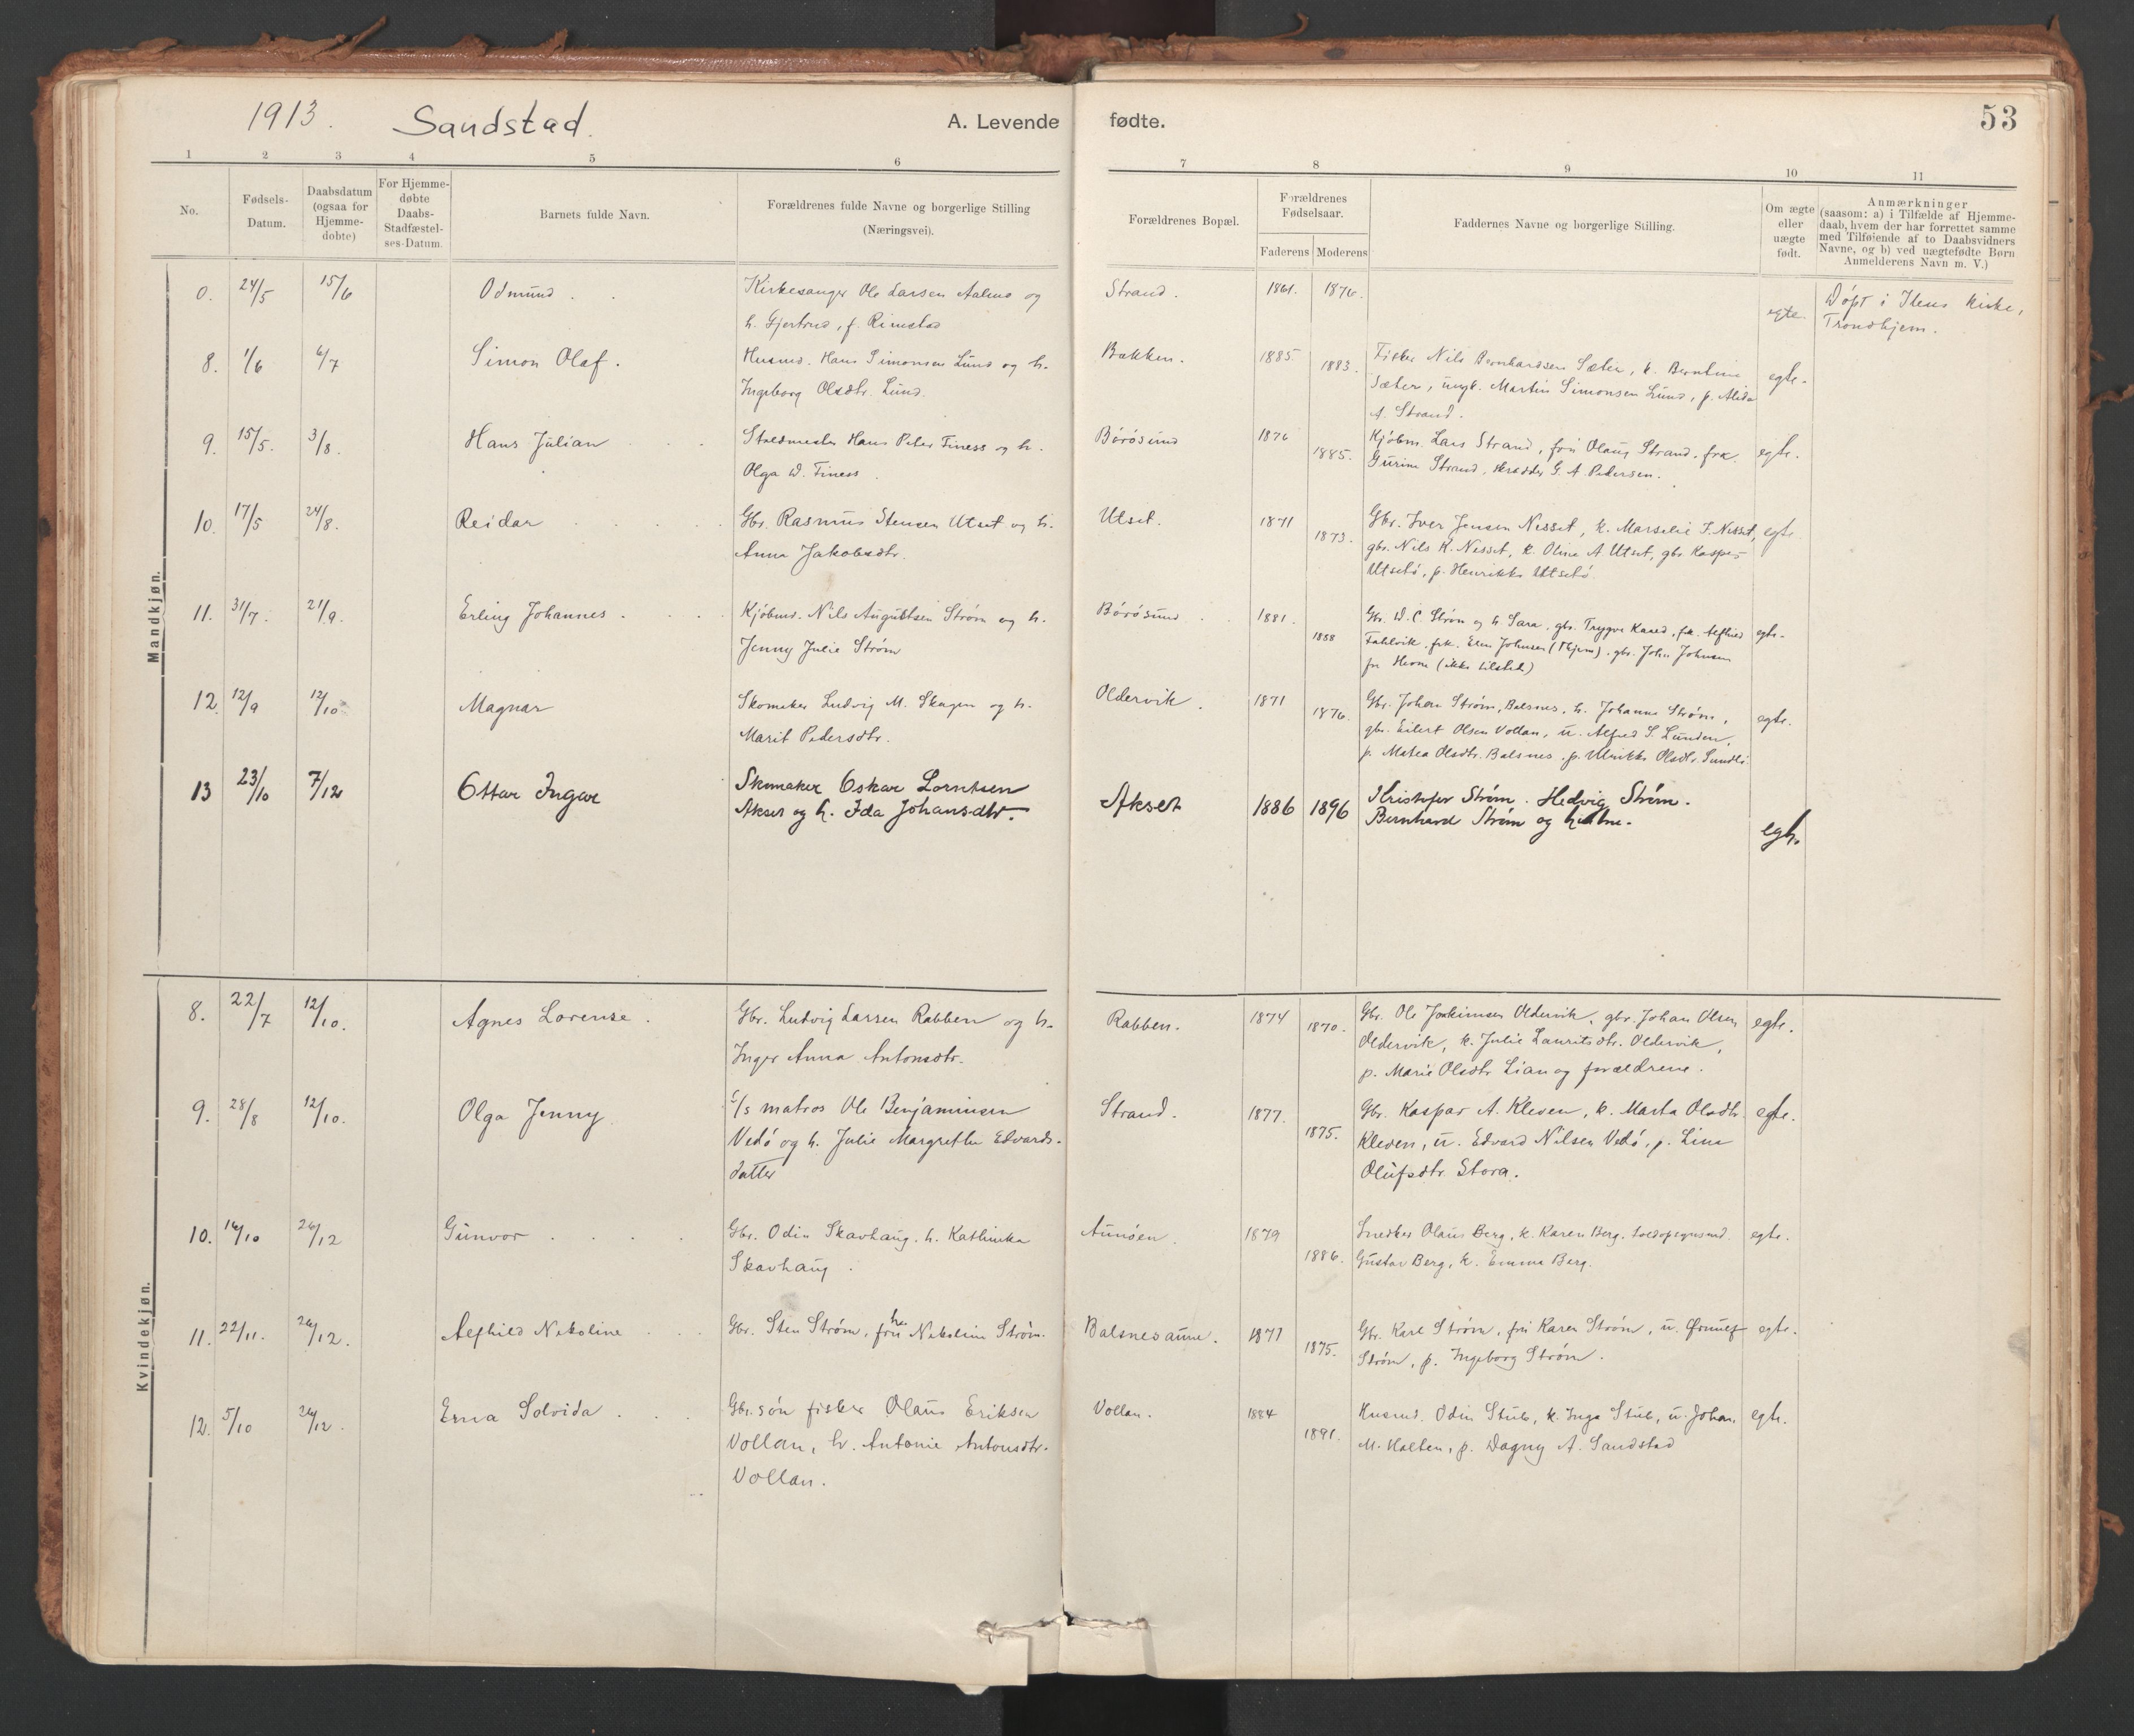 1913. Sandstad. A. Levende fødte. 53
1 2 3 4 5 6 7 8 9 10 11
No.
Fødsels-Datum.
Daabsdatum (ogsaa for Hjemme-døbte)
For Hjemme-døbte Daabs-Stadfæstel-ses-Datum.
Barnets fulde Navn.
Forældrenes fulde Navne og borgerlige Stilling (Næringsvei).
Forældrenes Bopæl.
Forældrenes Fødselsaar.
Faderens Moderens
Faddernes Navne og borgerlige Stilling.
Om ægte eller uægte født.
Anmærkninger
(saasom: a) i Tilfælde af Hjemme-
daab, hvem der har forrettet samme
med Tilføiende af to Daabsvidners
Navne, og b) ved uægtefødte Børn
Anmelderens Navn m. V.)
Mandkjøn.
0. 24/5 15/6 Odmund Kirkesanger Ole Larsen Aalmo og Strand. 1861. 1876. egte. Døpt i Ilens Kirke,
h. Gjertrud, f. Rimstad Trondhjem.
8. 1/6 6/7 Simon Olaf. Husmd. Hans Simonsen Lund og h. Bakken. 1885. 1883. Fisker Nils Bernhardsen Sæter, k. Berntine egte.
Ingeborg Olsdtr. Lund. Sæter, ungk. Martin Simonsen Lund, p. Alida
A. Strand.
9. 15/5. 3/8. Hans Julian Hans Peter Finess og h. Börösund 1876 1885. Kjöbm. Lars Strand, fru Olaug Strand, frk. egte.
Olga D. Finess. Gurine Strand, skrædder G. A. Pedersen.
10. 17/5 24/8. Reidar Gbr. Rasmus Stensen Utset og h. Utset. 1871 1873. Gbr. Iver Jensen Nesset, k. Marselie I. Nesset, egte
Anna Jakobsdtr. gbr. Nils K. Nesset, k. Oline A Utset, gbr. Kasper
Utsetö, p. Henrikke Utsetö.
11. 31/7. 21/9. Erling Johannes Kjöbmd. Nils Augustsen Ström og h. Börösund 1881. 1888 Gbr. D. C. Ström og h Sara, gbr. Trygve, frk. Alfhild egte.
Jenny Julie Ström Fahlvik, frk. Johnsen (Thjem), gbr. John Johnsen
fr Hevne (ikke tilsted)
12. 12/9 12/10 Magnar Skomaker Ludvig M. Skagen og h. Oldervik. 1871 1876. Gbr. Johan Ström, Balsnes, h. Johanna Ström, egte.
Marit Pedersdtr. gbr. Eilert Olsen Vollan, u. Alfred S. Lunden,
p. Matea Olsdtr. Balsnes, p. Ulrikke Olsdtr. Sundli
13 23/10 7/12 Ottar Ingar Skomaker Oskar Lorntsen Akset 1886 1896 Kristofer Strøm. Hedvig Strøm. egte.
Akset og h. Ida Johansdtr. Bernhard Strøm og hustru.
Kvindekjøn.
8. 22/7 12/10. Agnes Lorense. Gbr. Ludvig Larsen Rabben og h. Rabben. 1874 1870. Gbr. Ole Joakimsen Oldervik, gbr. Johan Olsen egte.
Inger Anna Antonsdtr. Oldervik, k. Julie Lauritsdtr. Oldervik,
p. Marie Olsdtr Lian og forældrene.
9. 28/8 12/10. Olga Jenny F/s matros Ole Benjaminsen Strand. 1877. 1875. Gbr. Kaspar A. Kleven, k. Marta Olsdtr. egte.
Vedö og h. Julie Margrethe Edvards- Kleven, u. Edvard Nilsen Vedö, p. Lina
datter Olufsdtr. Stora.
10. 16/10 26/12 Gunvor Gbr. Odin Skavhaug. h. Kathinka Aunöen. 1879 1886. Snedker Olaus Berg, k. Karen Berg. toldopsynsmd. egte.
Skavhaug. Gustav Berg, k. Emma Berg.
11. 22/11. 26/12. Alfhild Nikoline Gbr. Sten Ström, fru Nikoline Ström. Balsnesaune. 1877 1875. Gbr. Karl Ström, fru Karen Ström, u. egte.
Ström, p. Ingeborg Ström.
12. 5/10 26/12. Erna Solvida Gbr.sön fisker Olaus Eriksen Vollan. 1884 1891. Husmd. Odin Stub, k. Inga Stub, u. Johan egte.
Vollan, h. Antonie Antonsdtr. M. Halten, p. Dagny A. Sandstad
Vollan.